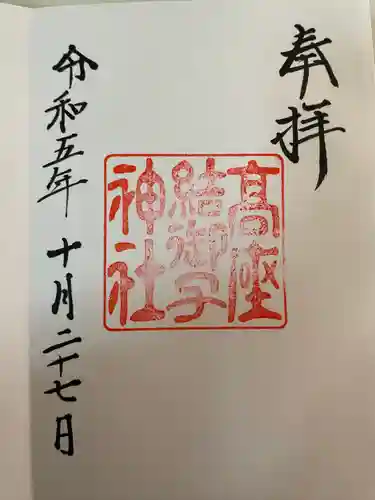 奉拝
高座
結御子
神社
令和五年 十月二十七日